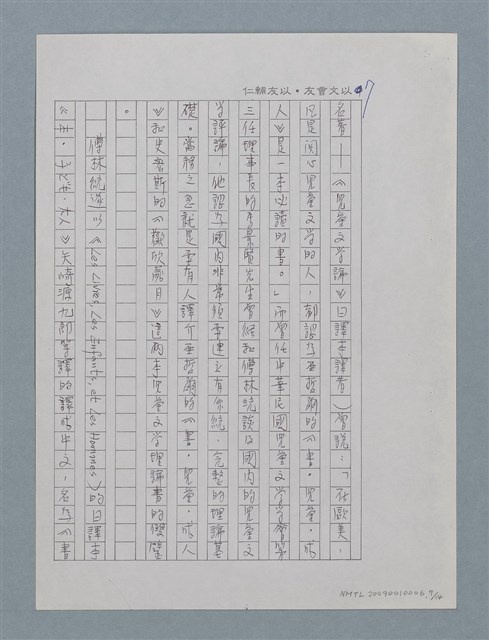 仁輔友以・友會文以
7
名著——《兒童文學論》日譯本譯者）曾說：「在歐美，
凡是關心兒童文學的人，都認為亞哲爾的《書・兒童・成
人》是一本必讀的書。」而曾任中華民國兒童文學學會第
三任理事長的李景賢先生曾經和傅林統談及國內的兒童文
学評論，他認為國內非常須要建立有系統、完整的理論基
礎。當務之急就是要有人譯介亞哲爾的《書・兒童・成人
》和史密斯的《歡欣歲月》這兩本兒童文學理論書的傑作
。
傅林統遂以《Les Livres, Les Enfants, et Les Hommes》的日譯本
《本・子ども・大人》矢崎源九郎等譯的譯成中文，名為《書
NMTL 20090010006. 7/14